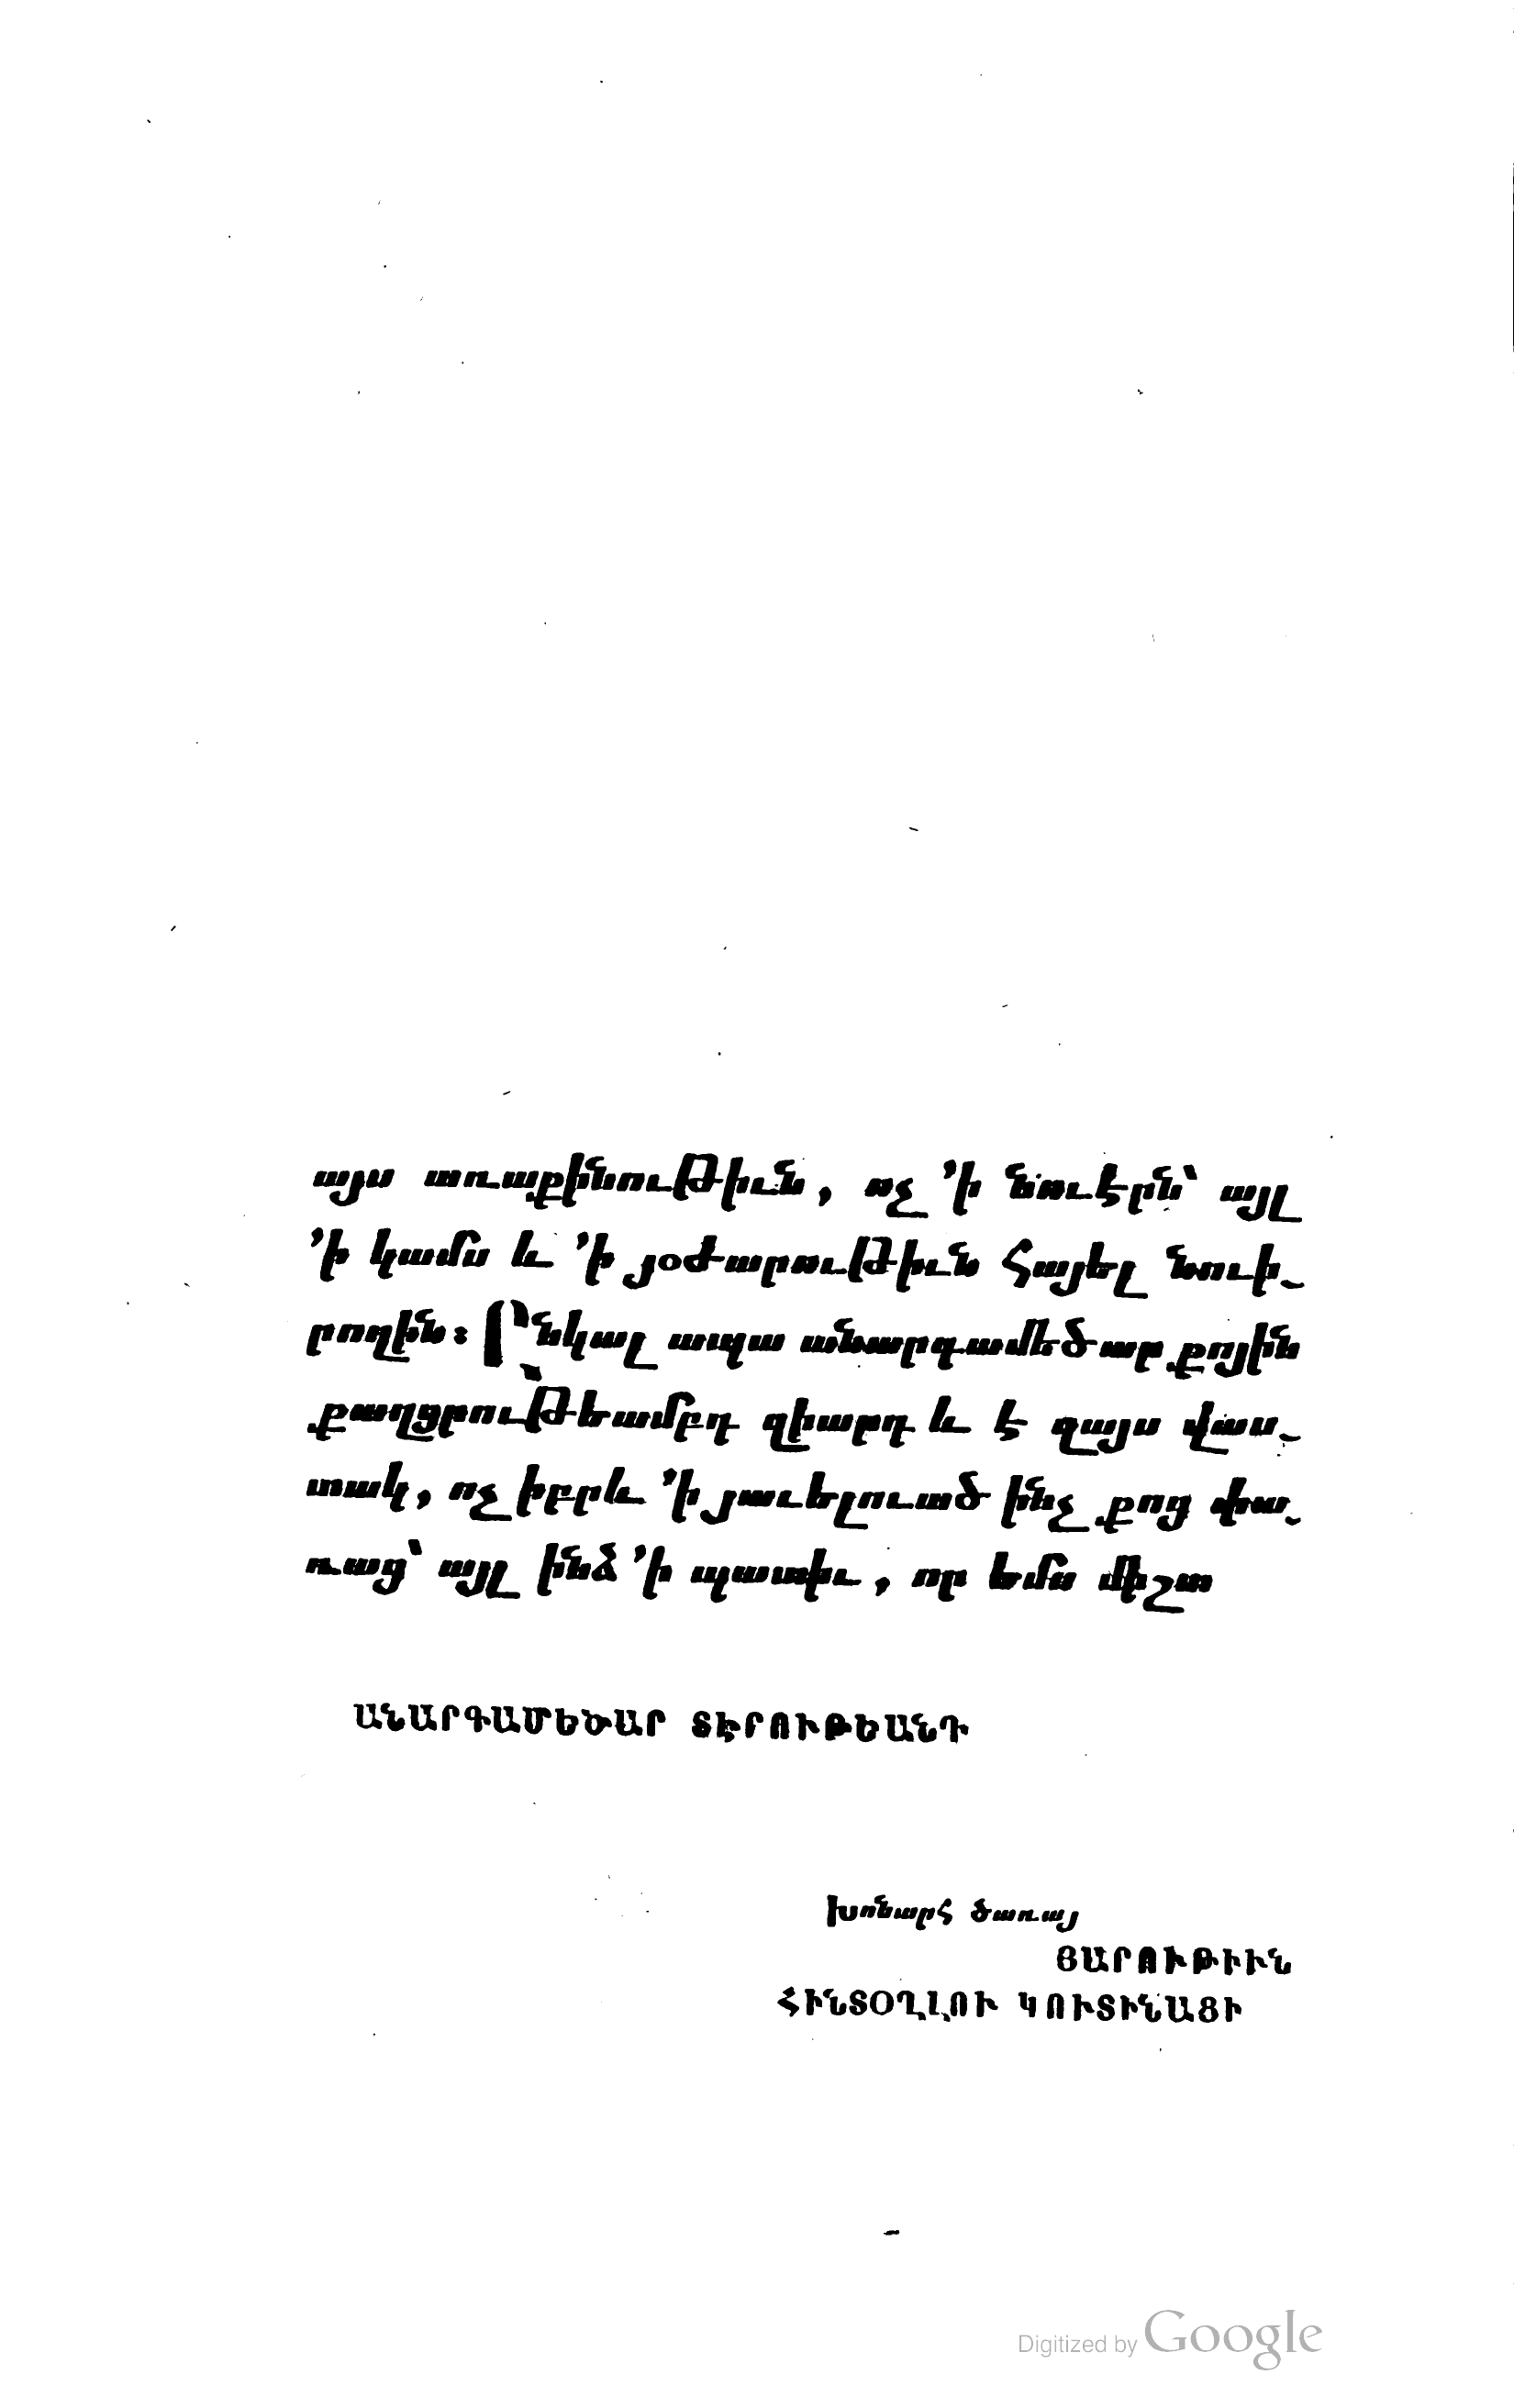 այս առաքինութիւն, ոչ ՚ի նուէրն՝ այլ
՚ի կամս և ՚ի յօժարութիւն հայել նուի֊
րողին։ Ընկալ ապա անարգամեծար քոյին
քաղցրութեամբդ զիարդ և է զայս վաս֊
տակ, ոչ իբրև ՚ի յաւելուած ինչ քոց փա֊
ռաց՝ այլ ինձ ՚ի պատիւ, որ եմս միշտ
ԱՆԱՐԳԱՄԵԾԱՐ ՏԷՐՈՒԹԵԱՆԴ
Խոնարհ ծառայ
ՅԱՐՈՒԹԻՒՆ
ՀԻՆՏՕՂԼՈՒ ԿՈՒՏԻՆԱՑԻ
Digitized by Google